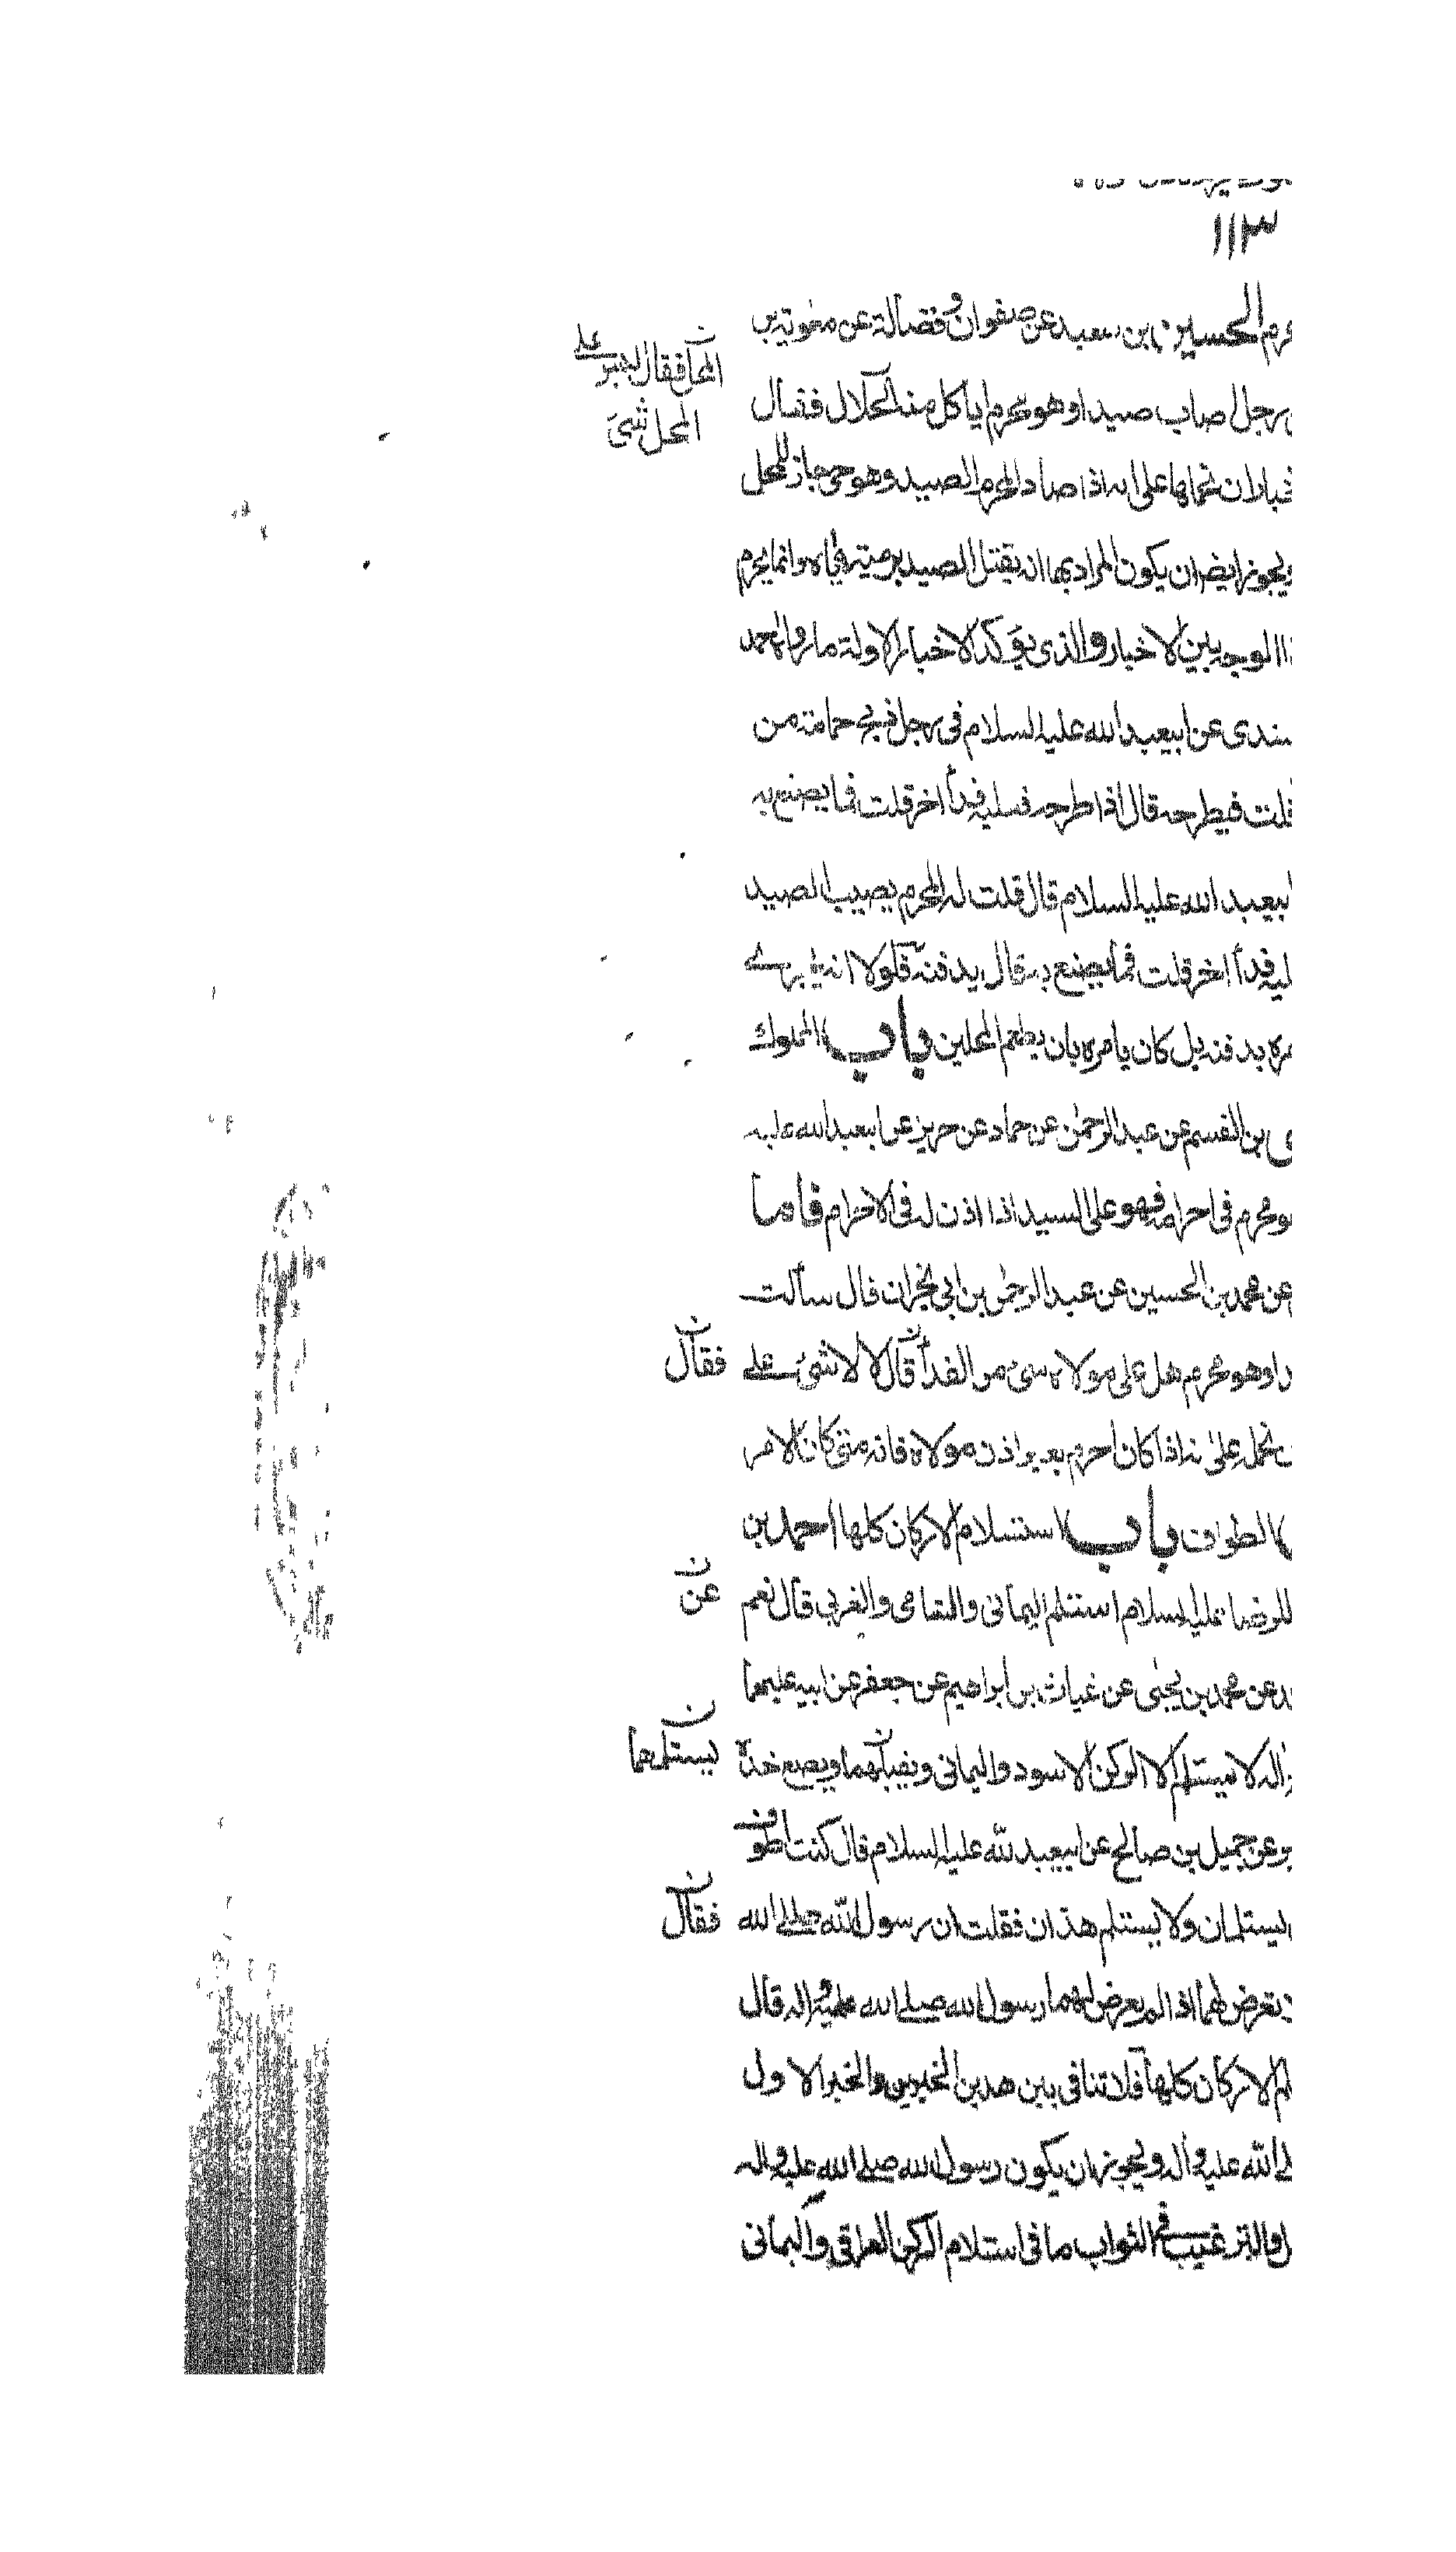 ١١٣
الحسين بن سعيد عن صفوان وفضالة عن معوية بن
رجل اصاب صيدا وهو محرم ايأكل منه الحلال فقال
ان نحملها على انه اذا صاد المحرم الصيد وهو حى جاز للمحل
ويجوز ايضا ان يكون المراد بها انه يقتل الصيد برميته اياه وانما يحرم
الوجه بين الاخبار والذى يؤكد الاخبار الاولة ما رواه محمد
عن ابيعبد الله عليه السلام فى رجل ذبح حمامة من
قلت فيطرحه قال اذا طرحه فعليه فدآء اخر قلت فما يصنع به
ابيعبد الله عليه السلام قال قلت له المحرم يصيب الصيد
فدآء اخر قلت فما يصنع به قال يدفنه فلولا انه جرى
بدفنه بل كان يامره بان يطعم المحلين باب المملوك
بن القسم عن عبد الرحمن عن حماد عن حريز عن ابيعبد الله عليه
محرم فى احرامه فهو على السيد اذا اذن له فى الاحرام فاما
عن محمد بن الحسين عن عبد الرحمن بن ابى نجران قال سألت
وهو محرم هل على مولاه شئ من الفدآء قال لا لا شئ على
نحمل على انه اذا كان احرم بغير اذن مولاه فانه متى كان الامر
الطواف باب استلام الاركان كلها احمد بن
للرضا عليه السلام استلم اليمانى والشامى والغربى قال نعم
عن محمد بن يحيى عن غياث بن ابراهيم عن جعفر عن ابيه عليهما
اله لا يستلم الا الركن الاسود واليمانى ويقبلهما ويضع خده
عن جميل بن صالح عن ابيعبد الله عليه السلام قال كنت اطوف
يستلمان ولا يستلم هذان فقلت ان رسول الله صلى الله
تعرض لهما اذا لم يعرض لهما رسول الله صلى الله عليه واله قال
الاركان كلها فلا تنافى بين هذين الخبرين والخبر الاول
الله عليه واله ويجوز ان يكون رسول الله صلى الله عليه واله
والترغيب فى الثواب ما فى استلام الركن العراقى واليمانى
المحل فقال ليس على
المحل شئ
فقال
عن
يستلمهما
فقال